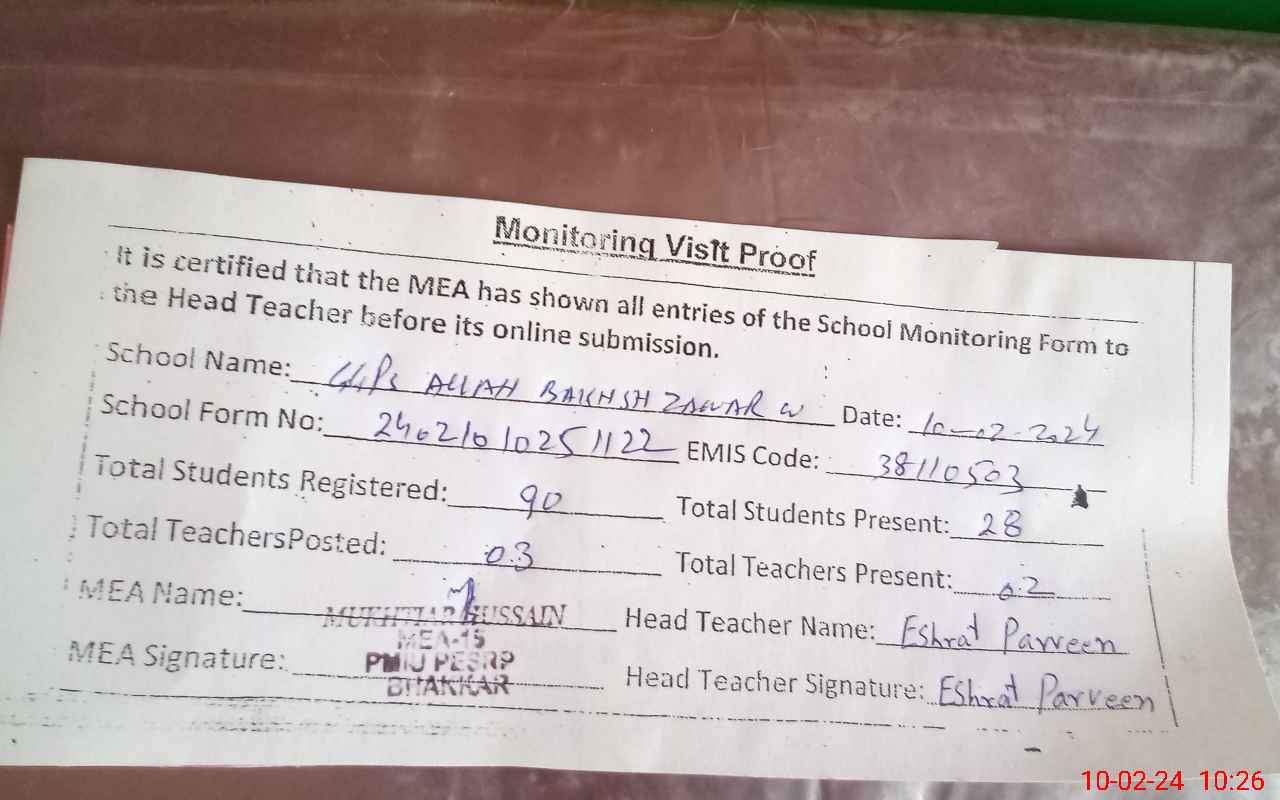 Monitoring Visit Proof
It is certified that the MEA has shown all entries of the School Monitoring Form to
the Head Teacher before its online submission.
School Name: GGPS ALLAH BAKHSH ZAWAR W Date: 10-02-2024
School Form No: 24021010251122 EMIS Code: 38110503
Total Students Registered: 90 Total Students Present: 28
Total TeachersPosted: 03 Total Teachers Present: 02
MEA Name: MUKHTIAR HUSSAIN Head Teacher Name: Eshrat Parveen
MEA-15
MEA Signature: PMIU PESRP Head Teacher Signature: Eshrat Parveen
BHAKKAR
10-02-24 10:26